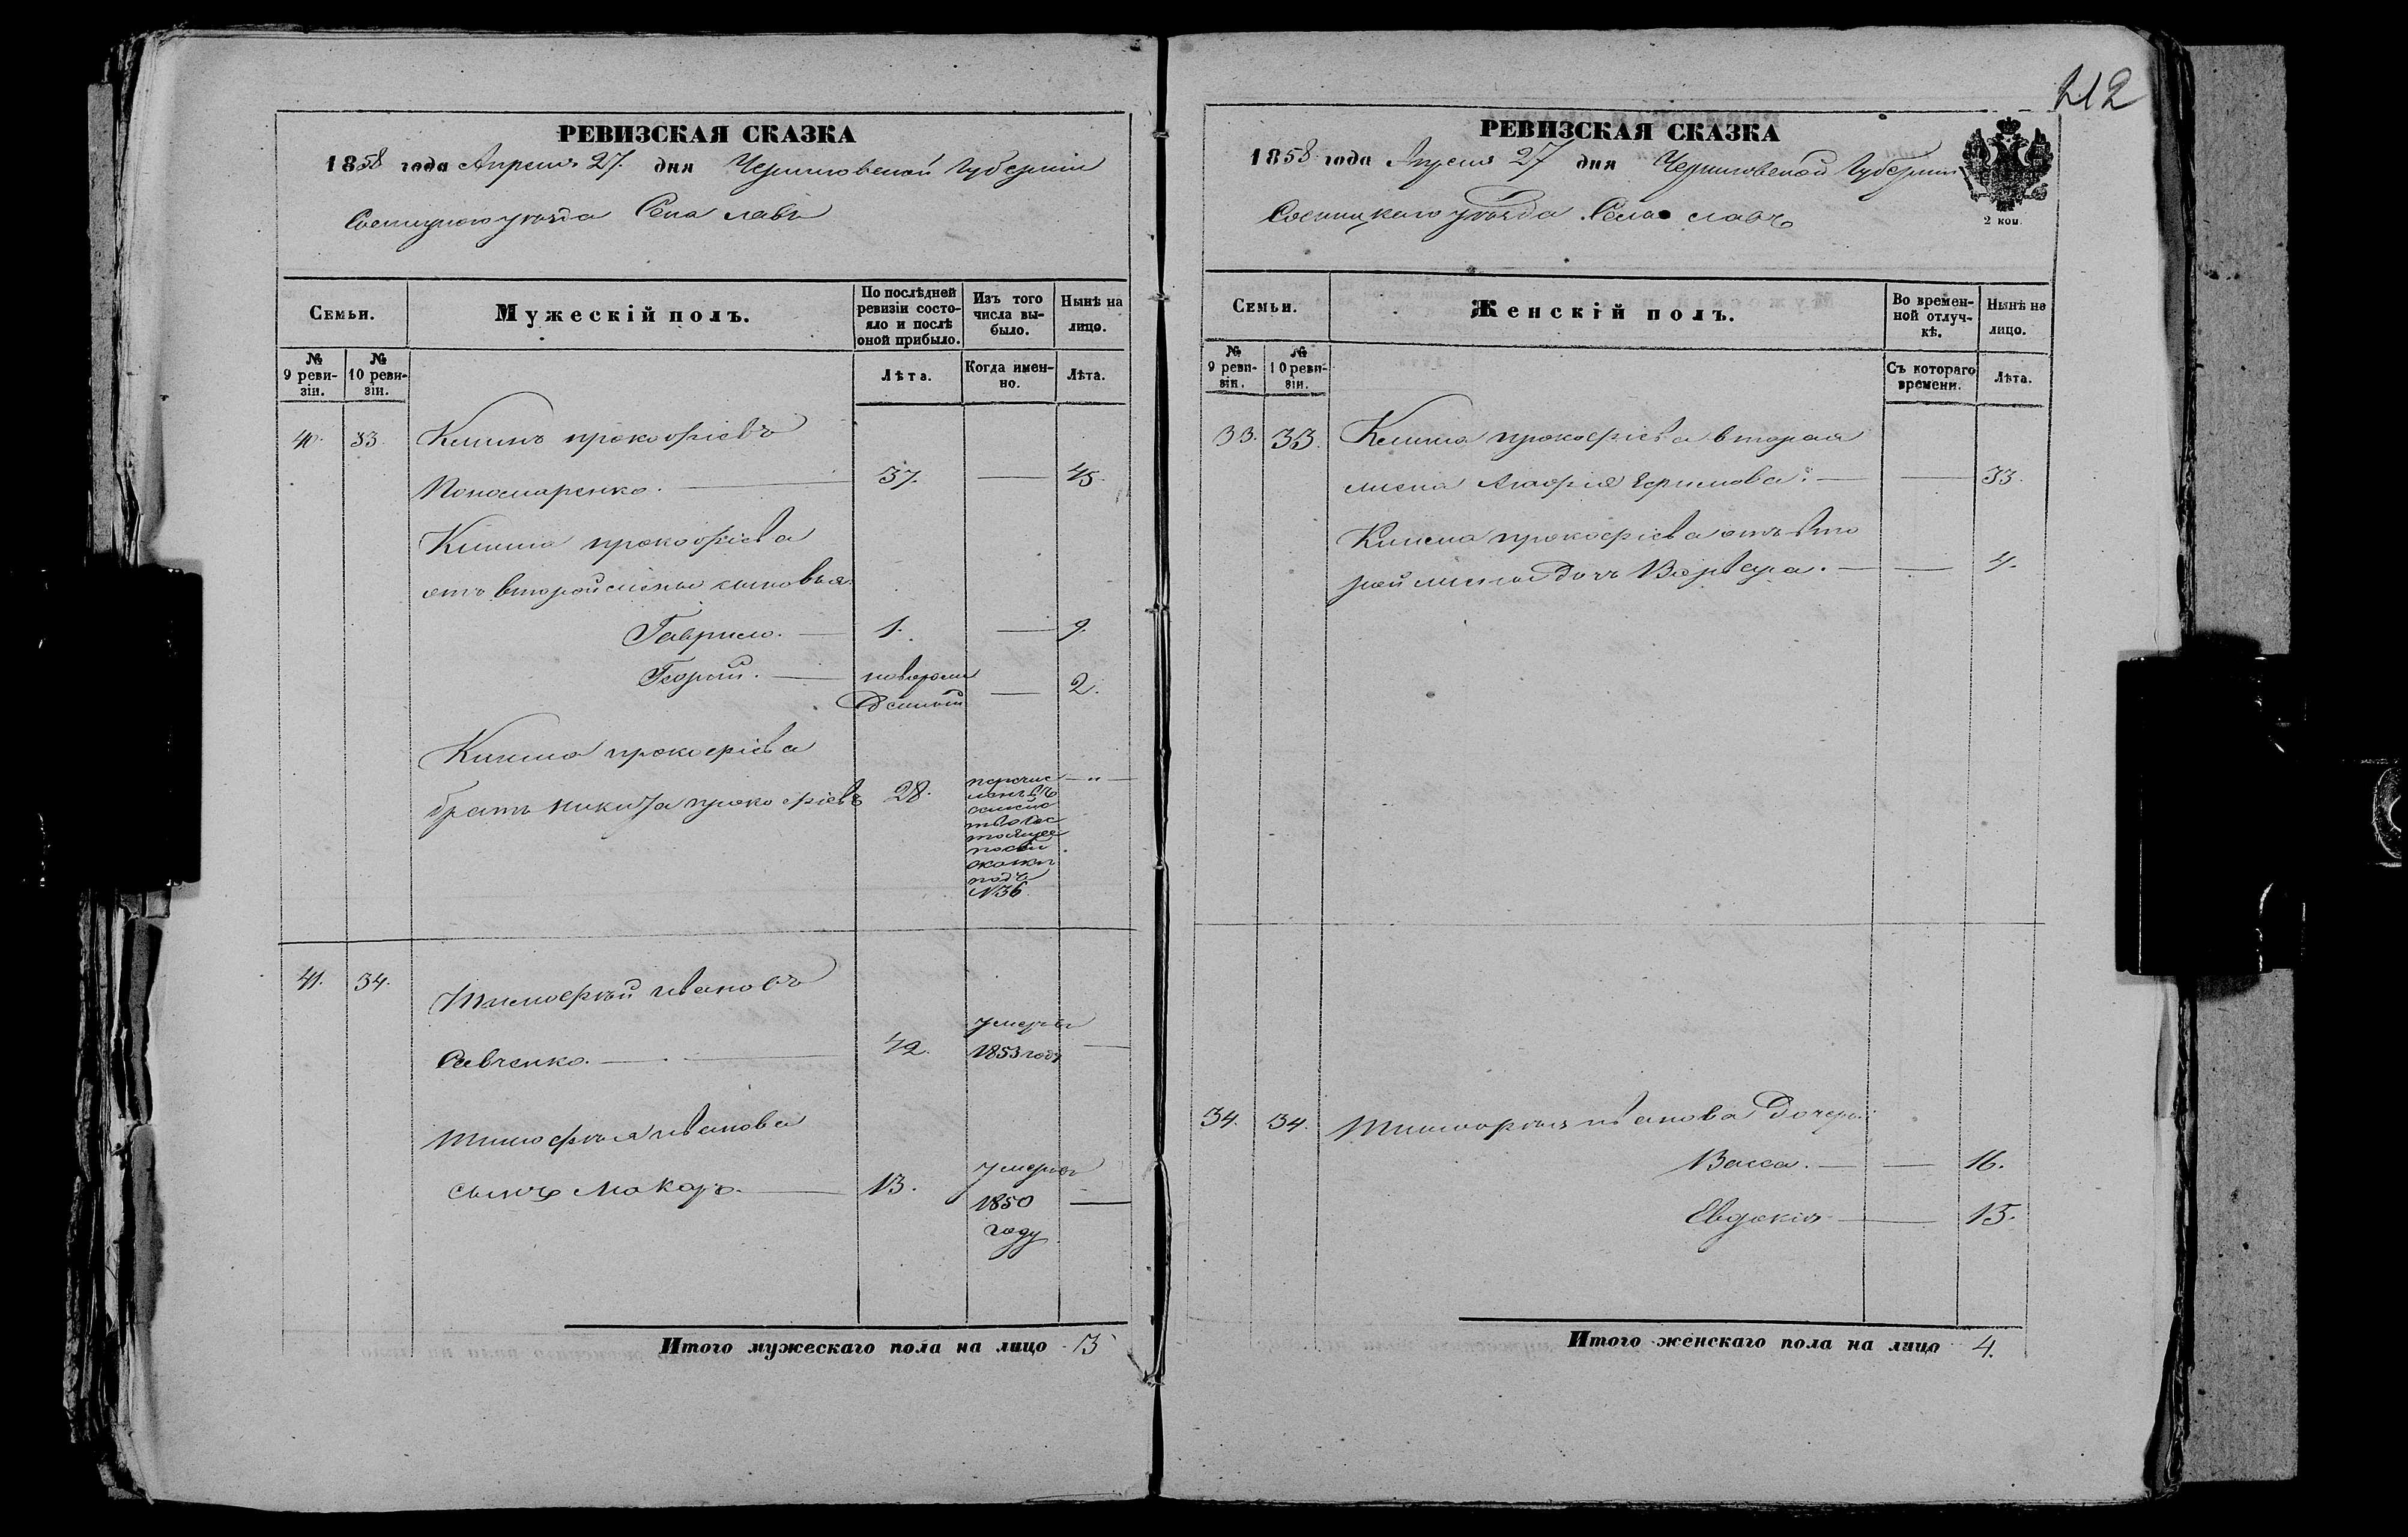 212
РЕВИЗСКАЯ СКАЗКА
1858 года Апреля 27. дня Черниговской Губернии
Сосницкого уезда Села лавъ
Семьи.
Мужескій полъ.
По послѣдней ревизіи состояло и послѣ оной прибыло.
Изъ того числа выбыло.
Нынѣ на лицо.
№ 9 ревизіи.
№ 10 ревизіи.
Лѣта.
Когда именно.
Лѣта.
40. 33. Климъ прокофіевъ
Пономаренко. 37. 45.
Клима прокофіева
отъ второй жены сыновья
Гаврило. 1. 9.
Георгій. новорож
денный 2.
Клима прокофіева
братъ никита прокофіевъ 28.
перечис
ленъ въ
семейс
тво сос
тоящее
по сей
скажи
подъ
№36
41. 34. Тимофѣй ивановъ
Савченко. 42. умеръ
1853 году
Тимофѣя иванова
сынъ Макаръ. 13. умеръ
1850
году
Итого мужескаго пола на лицо 3
РЕВИЗСКАЯ СКАЗКА
1858 года Апреля 27 дня Черниговской Губернии
Сосницкаго уезда Села лавъ
2 коп.
Семьи.
Женскій полъ.
Во временной отлучкѣ.
Нынѣ на лицо.
№ 9 ревизіи.
№ 10 ревизіи.
Съ котораго времени.
Лѣта.
33. 33. Клима прокофіева вторая
жена Агафія 33.
Клима прокофіева отъ вто
рой жены дочь Варвара. 4.
34. 34. Тимофѣя иванова дочери
Васса. 16.
Евдокія 15.
Итого женскаго пола на лицо 4.